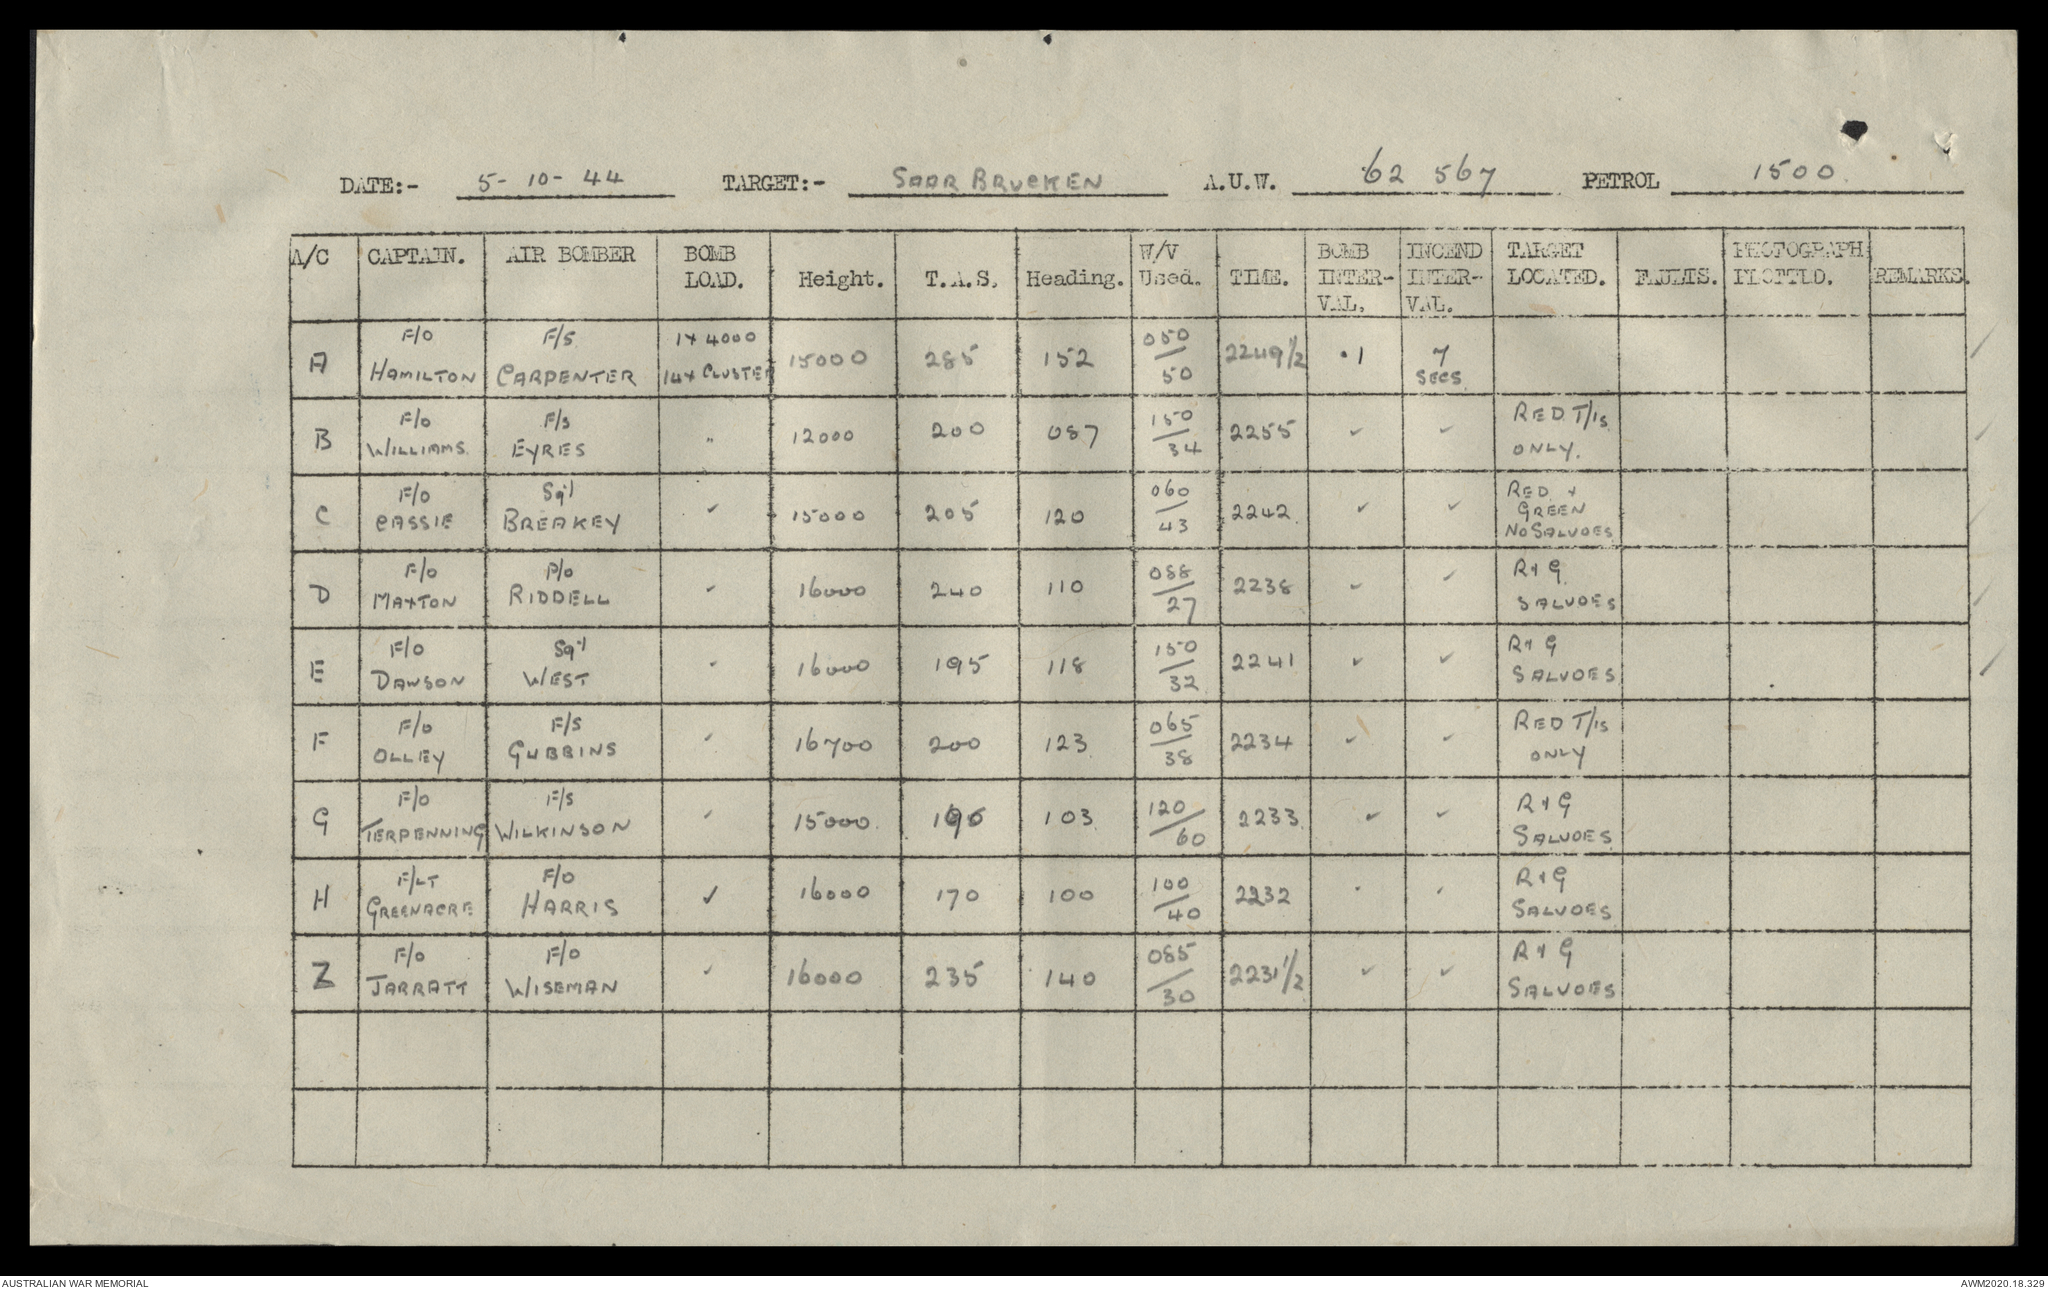 DATE:- 5-10-44 TARGET:- SAARBRUCKEN A.U.W. 62 567 PETROL 1500
A/C CAPTAIN. AIR BOMBER BOMB LOAD. Height. T.A.S. Heading. W/V Used. TIME. BOMB INTER-VAL. INCEND INTER-VAL. TARGET LOCATED. FAULTS. PHOTOGRAPH PLOTTED. REMARKS.
A F/O HAMILTON F/S CARPENTER 1x4000 14x CLUSTER 15000 285 152 050/50 2249½ .1 7 SECS
B F/O WILLIAMS F/S EYRES " 12000 200 087 150/34 2255 ✓ ✓ RED T/Is ONLY. ✓
C F/O CASSIE Sgt BREAKEY ✓ 15000 205 120 060/43 2242 ✓ ✓ RED + GREEN NO SALVOES ✓
D F/O MAXTON P/O RIDDELL ✓ 16000 240 110 088/27 2238 ✓ ✓ R+G SALVOES ✓
E F/O DAWSON Sgt WEST ✓ 16000 195 118 150/32 2241 ✓ ✓ R+G SALVOES ✓
F F/O OLLEY F/S GUBBINS ✓ 16700 200 123 065/38 2234 ✓ ✓ RED T/Is ONLY
G F/O TERPENNING F/S WILKINSON ✓ 15000 103 120/60 2233 ✓ ✓ R+G SALVOES
H F/LT GREENACRE F/O HARRIS ✓ 16000 170 100 100/40 2232 R+G SALVOES
Z F/O JARRATT F/O WISEMAN ✓ 16000 235 140 085/30 2231½ ✓ ✓ R+G SALVOES
AUSTRALIAN WAR MEMORIAL AWM2020.18.329